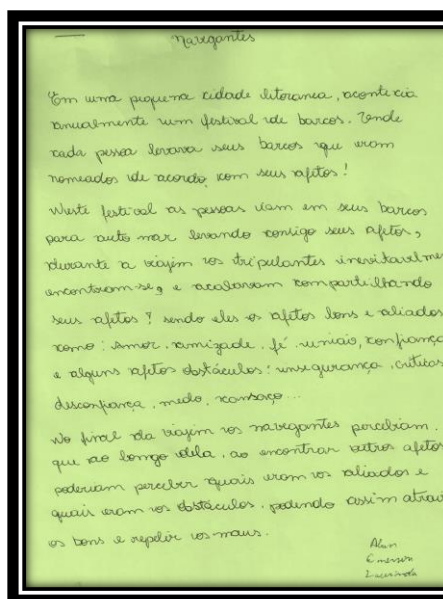 Navegantes
Em uma pequena cidade litoranea, acontecia
anualmente um festival de barcos. Onde
cada pessoa levava seus barcos que eram
nomeados de acordo com seus afetos!
Neste festival as pessoas iam em seus barcos
para auto mar levando contigo seus afetos,
durante a viajem os tripulantes inevitavelme
encontram-se, e acabavam compartilhando
seus afetos! sendo eles os afetos bons e aliados
como: Amor, amizade, fé, uniao, confiança
e alguns afetos obstáculos: insegurança, criticas
desconfiança, medo, cansaço...
No final da viajem os navegantes percebiam.
que ao longo dela, ao encontrar outros afetos
poderiam perceber quais eram os aliados e
quais eram os obstáculos, podendo assim atrair
os bons e repelir os maus.
Alan
Emerson